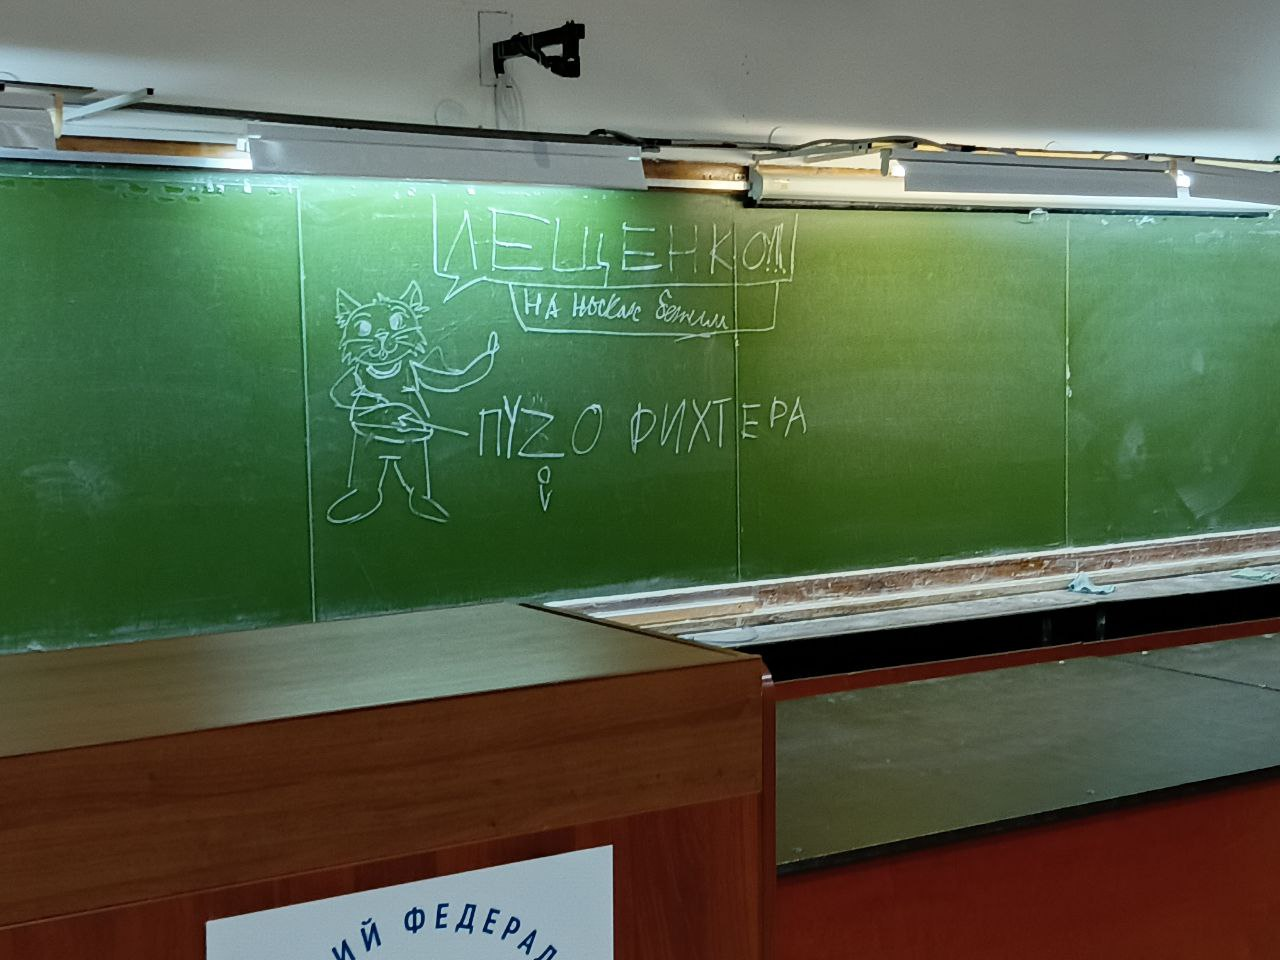 ЛЕЩЕНКО!!!
НА носках бежим
ПУZО ФИХТЕРА
ИЙ ФЕДЕРАЛ